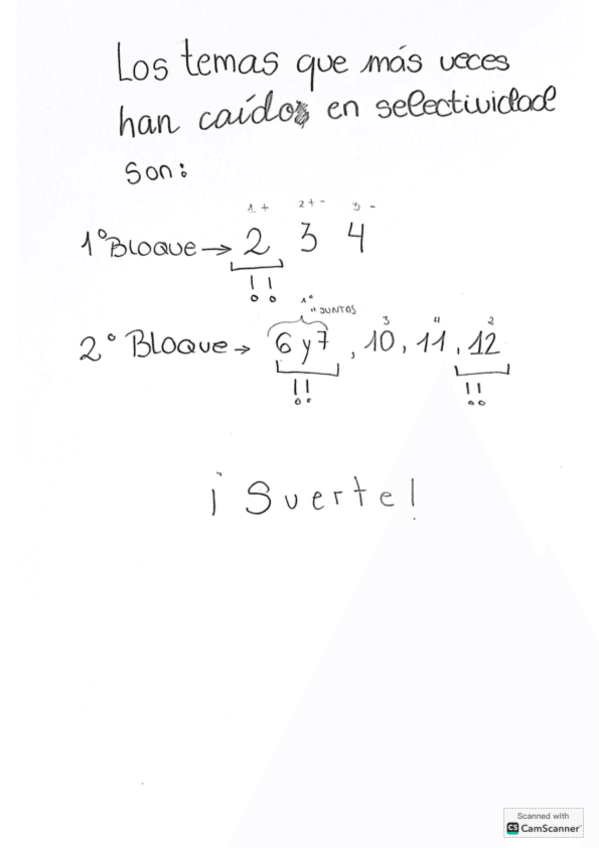 Los temas que más veces
han caído en selectividad
son:
1+ 2+- 3-
1º Bloque → 2 3 4
!!
1º
" JUNTOS 3 4 2
2º Bloque → 6 y 7, 10, 11, 12
!! !!
¡Suerte!
Scanned with
CS CamScanner